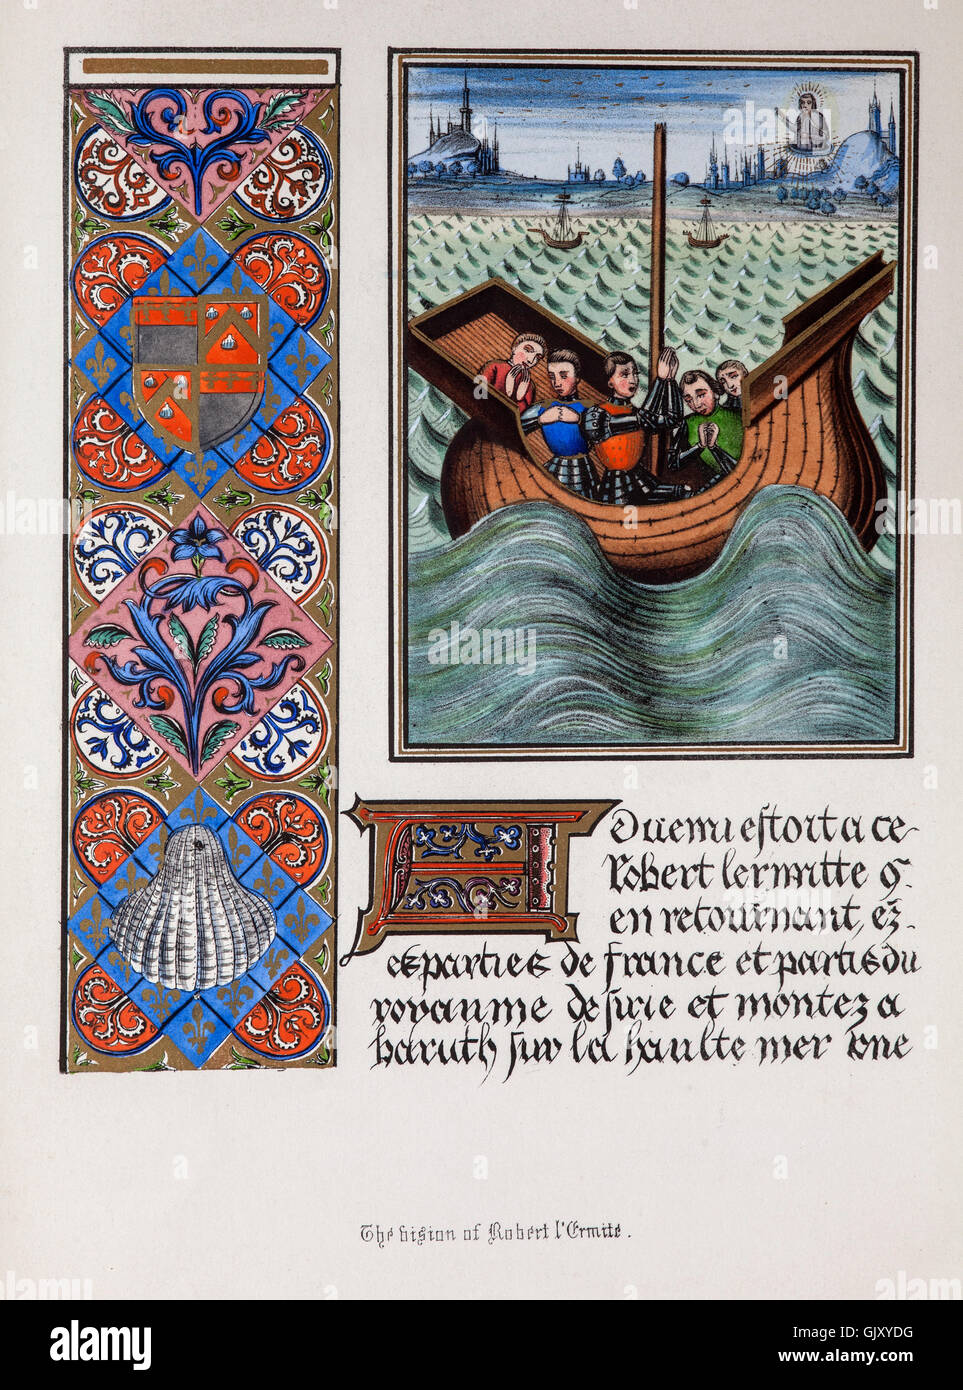 A
Duenu estoit a ce-
Robert lermitte q̃-
en retournant, ez-
es parties de france et partis du
royaume de surie et montez a
baruth sur la haulte mer une
The vision of Robert l'Ermite.
alamy stock photo
GJXYDG
www.alamy.com